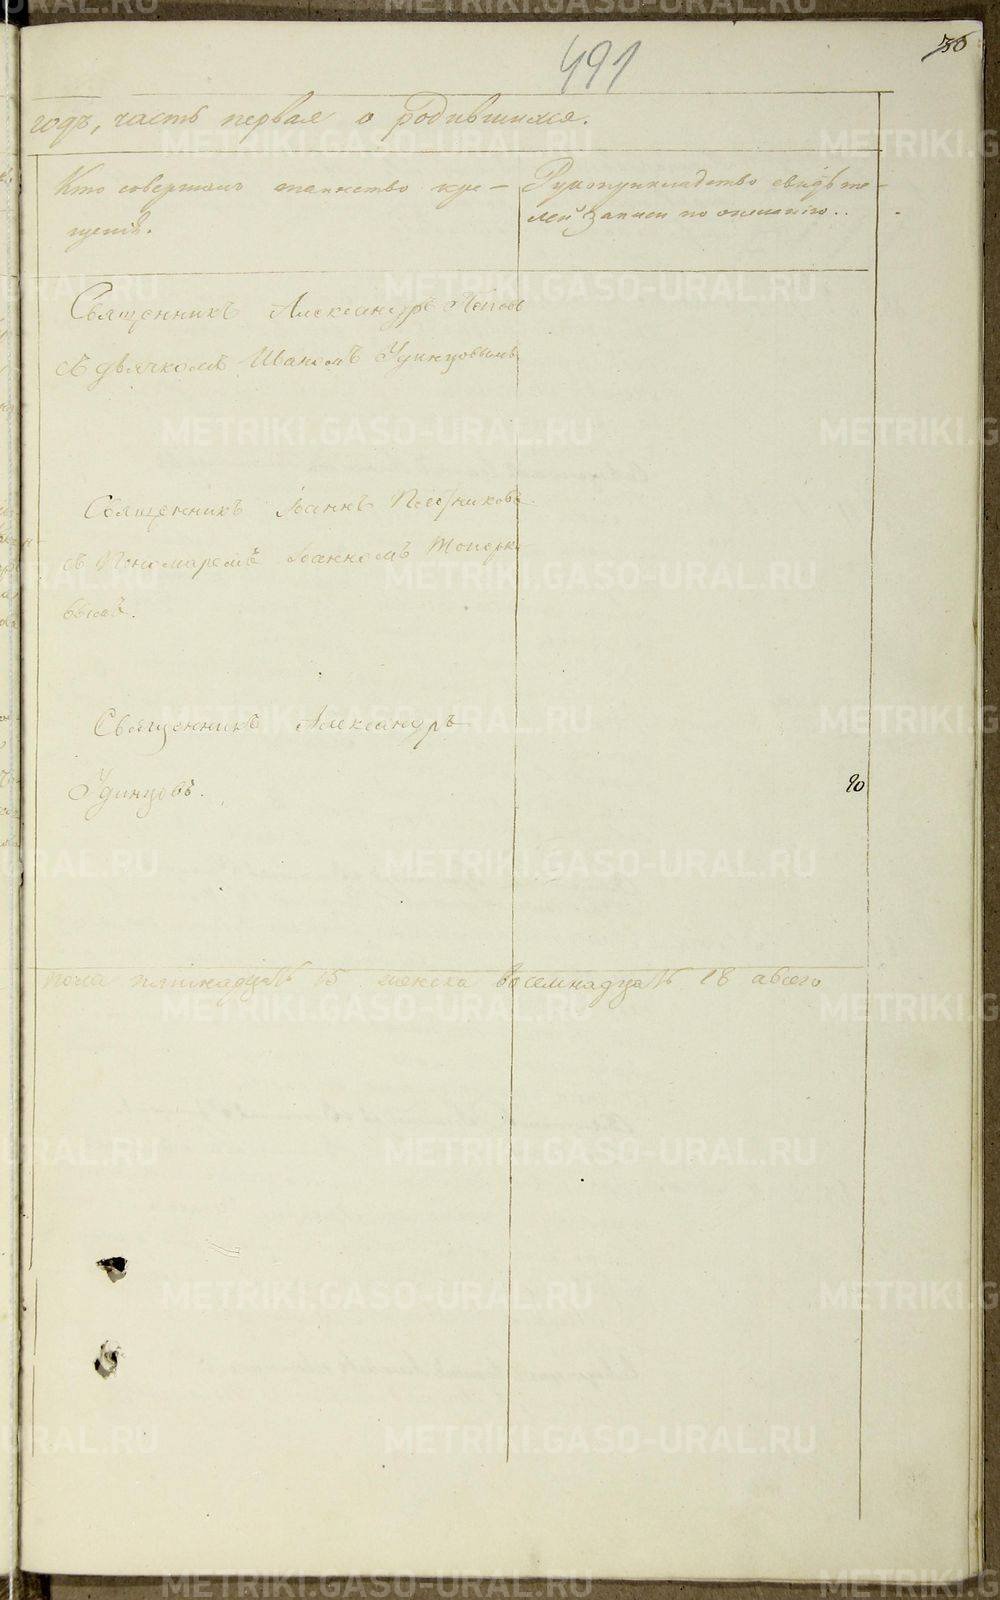 491
годъ, часть первая о родившихся.
Кто совершалъ таинство кре-
щенія.
Рукоприкладство свидѣте-
лей записи по желанію..
Священникъ Александръ Поповъ
съ дьячкомъ Иваномъ Удинцовымъ
Священникъ Іоаннъ
съ Пономаремъ Іоанномъ Топорко
вымъ.
Священникъ Александръ
Удинцовъ.
20
пола пятнадцать 15 женска восемнадцать 18 а всего
METRIKI.GASO-URAL.RU